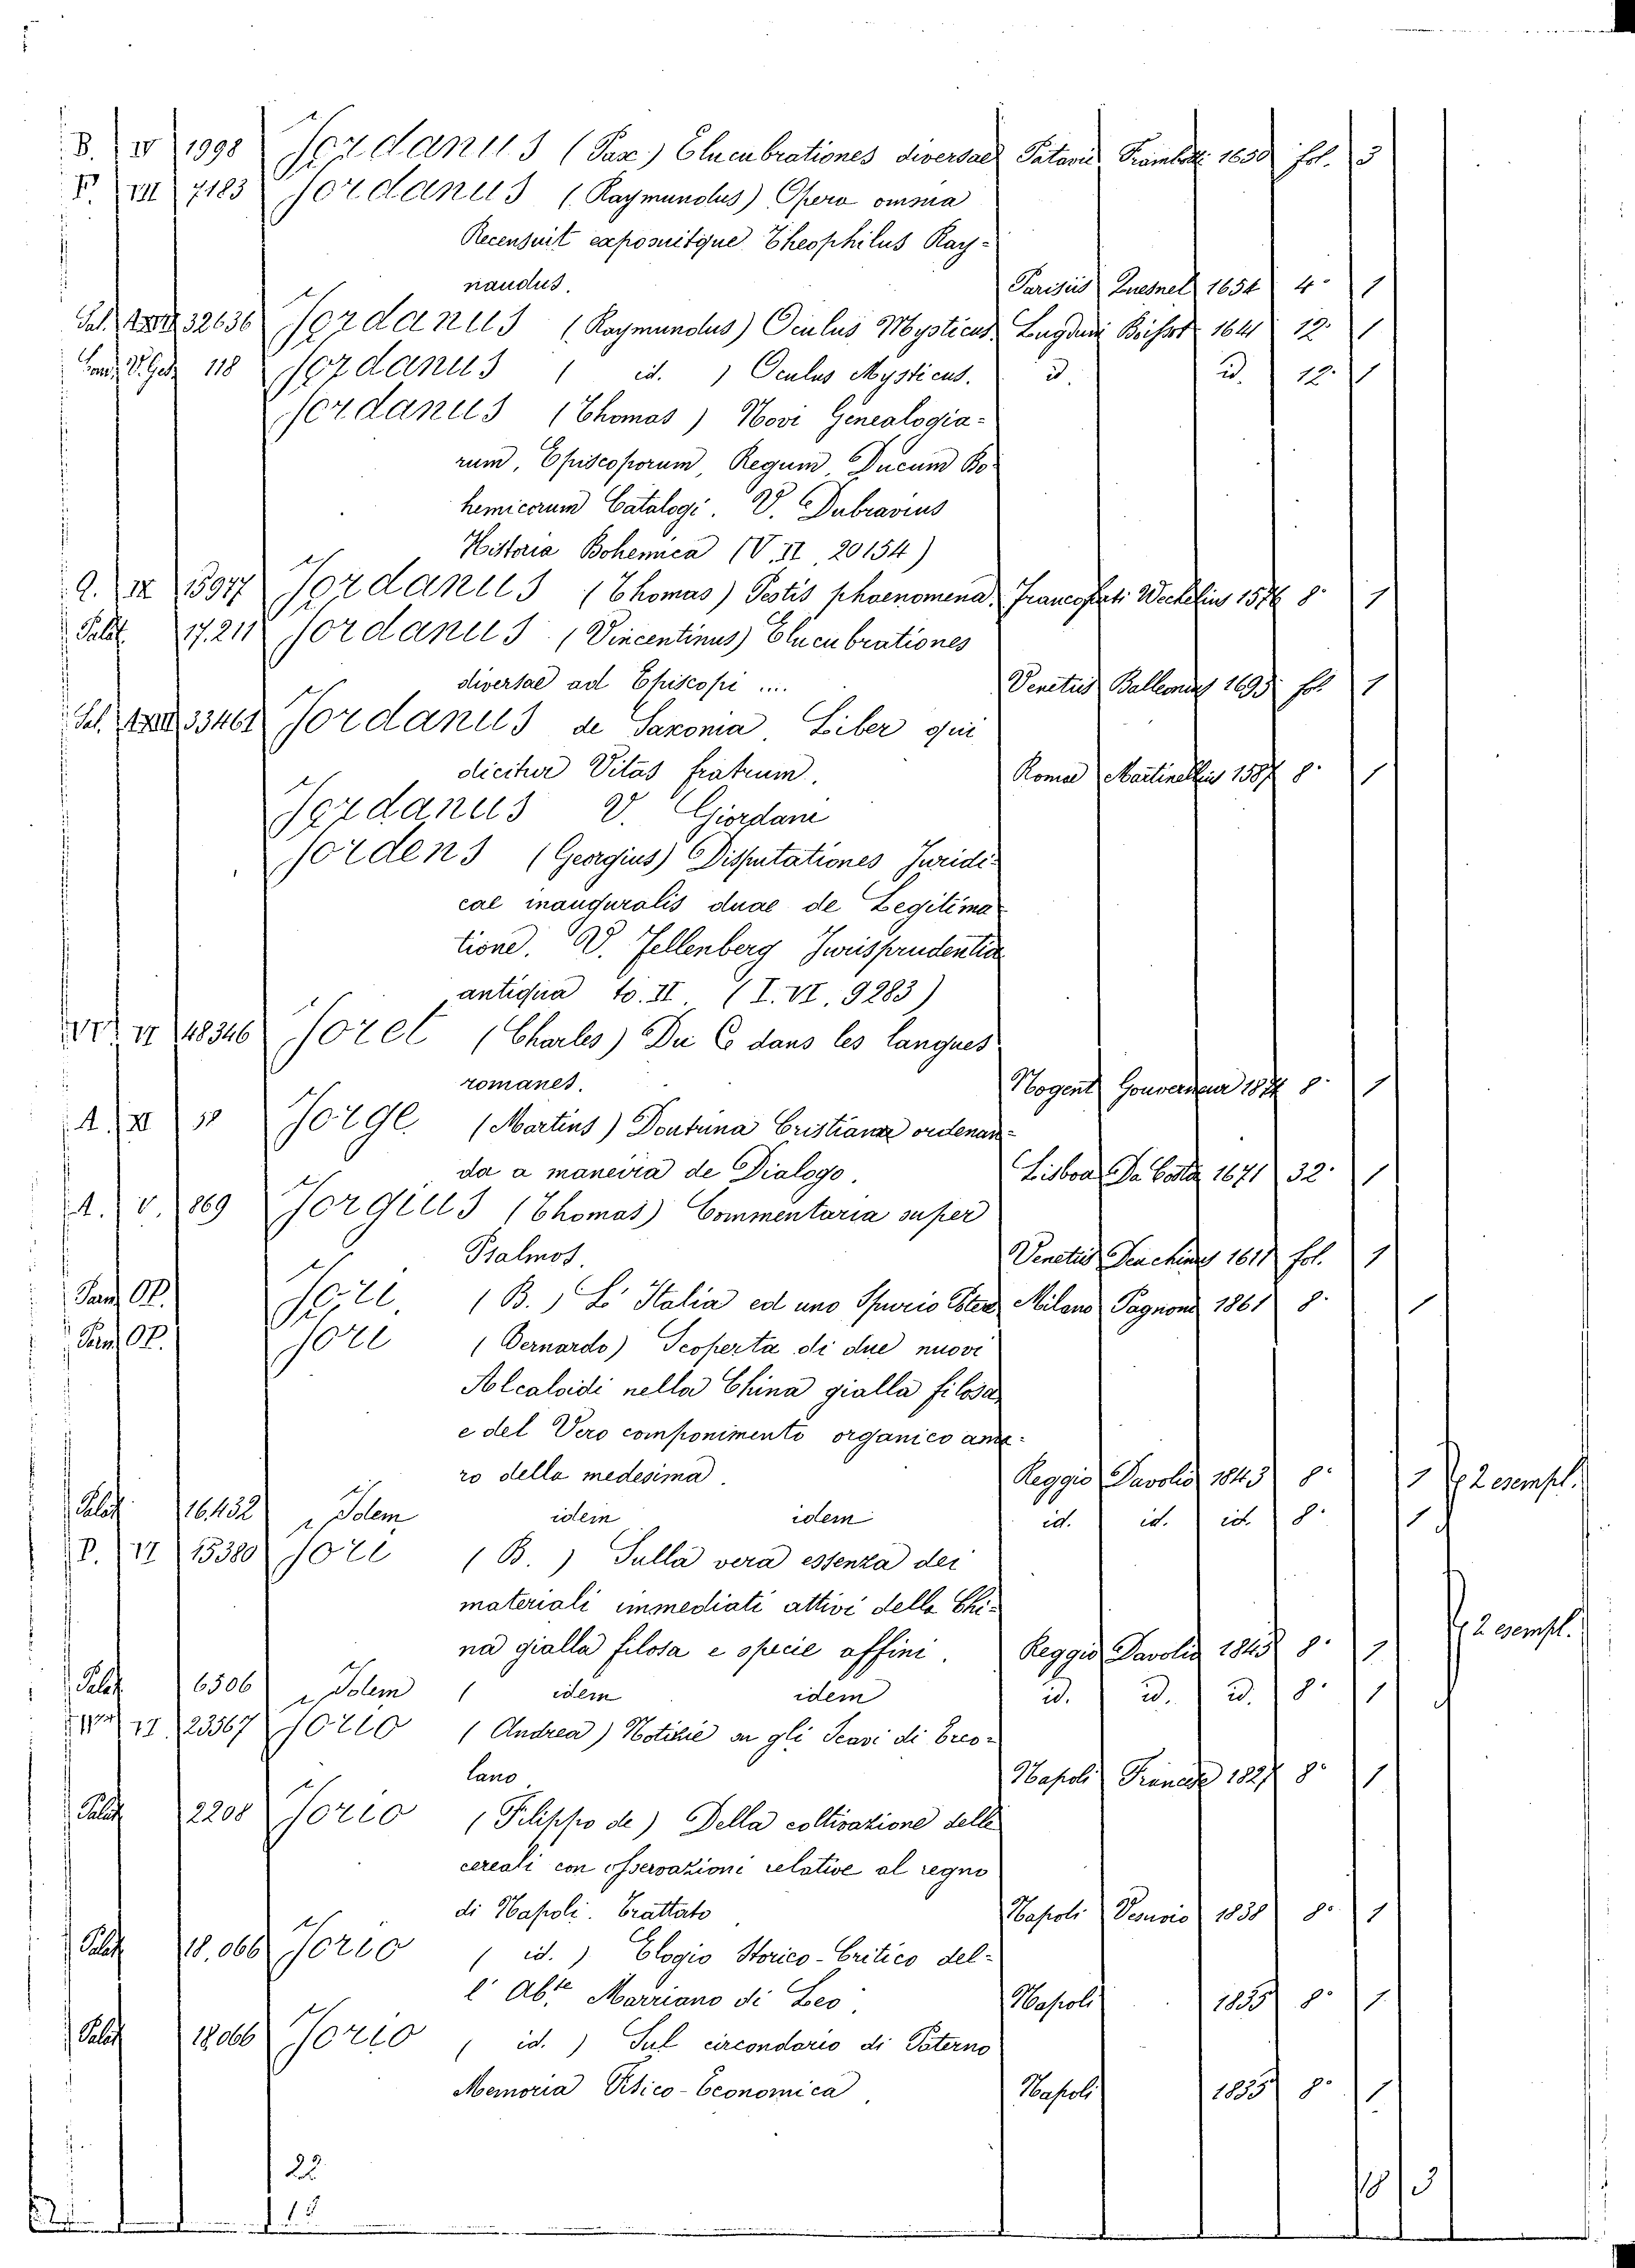 B. IV 1998 Jordanus (Pax) Elucubrationes diversae Patavii Frambotti 1650 fol. 3
F. VIII 7183 Jordanus (Raymundus) Opera omnia
Recensuit exposuitque Theophilus Ray-
naudus. Parisiis Quesnel 1654 4° 1
Sal. 32636 Jordanus (Raymundus) Oculus Mysticus Lugduni 1641 12° 1
118 Jordanus ( id. ) Oculus Mysticus. id. id. 12° 1
Jordanus (Thomas) Novi Genealogia-
rum, Episcoporum, Regum, Ducum Bo-
hemicorum Catalogi. V. Dubravius
Historia Bohemica (V. II 20154)
Q. IX 15977 Jordanus (Thomas) Pestis phoenomena. Francoforti Wechelius 1576 8° 1
Palat. 17.211 Jordanus (Vincentinus) Elucubrationes
diversae ad Episcopi .... Venetiis Balleonius 1693 fol. 1
Sal. 33461 Jordanus de Saxonia Liber qui
dicitur Vitas fratrum. Romae Martinellius 1587 8° 1
Jordanus V. Giordani
Jordens (Georgius) Disputationes Juridi-
cae inauguralis duae de Legitima-
tione. V. Fellenberg Jurisprudentia
antiqua to. II. (I. VI. 9283)
VI 48346 Joret (Charles) Du C dans les langues
romanes. Nogent Gouverneur 1874 8° 1
A. XI 58 Jorge (Martins) Doutrina Cristiana ordenan-
da a maneira de Dialogo. Lisboa Da Costa 1671 32° 1
A. V. 869 Jorgius (Thomas) Commentaria super
Psalmos. Venetiis 1611 fol. 1
Pam. OP. Jori (B.) L' Italia ed uno Spurio Ester Milano Pagnoni 1861 8° 1
Pam. OP. Jori (Bernardo) Scoperta di due nuovi
Alcaloidi nella China gialla filosa
e del Vero componimento organico ama-
ro della medesima. Reggio Davolio 1843 8° 1 2 esempl.
Palat. 16.432 Idem idem idem id. id. id. 8° 1
P. VI 15380 Jori (B.) Sulla vera essenza dei
materiali immediati attivi della Chi-
na gialla filosa e specie affini. Reggio Davolio 1845 8° 1 2 esempl.
Palat. 6506 Idem ( idem idem id. id. id. 8° 1
VI 23567 Jorio (Andrea) Notizie su gli Scavi di Erco-
lano. Napoli Francese 1827 8° 1
Palat. 2208 Jorio (Filippo de) Della coltivazione delle
cereali con osservazioni relative al regno
di Napoli. Trattato. Napoli Vesuvio 1838 8° 1
Palat. 18.066 Jorio ( id. ) Elogio Storico-Critico del-
l' Abte Marriano di Leo. Napoli 1835 8° 1
Palat. 18066 Jorio ( id. ) Sul circondario di Paterno
Memoria Fisico-Economica. Napoli 1835 8° 1
22
15
18 3